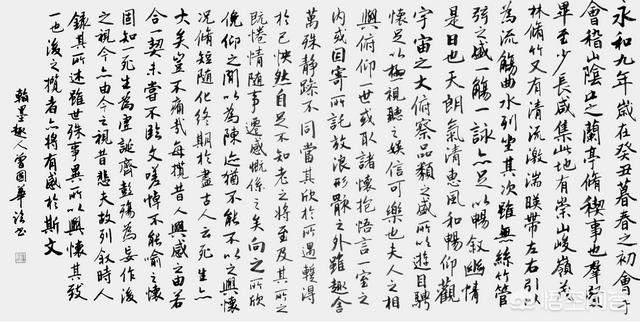 永和九年歲在癸丑暮春之初會于
會稽山陰之蘭亭脩稧事也群賢
畢至少長咸集此地有崇山峻嶺茂
林脩竹又有清流激湍暎帶左右引以
為流觴曲水列坐其次雖無絲竹管
弦之盛一觴一詠亦足以暢敘幽情
是日也天朗氣清惠風和暢仰觀
宇宙之大俯察品類之盛所以遊目騁
懷足以極視聽之娛信可樂也夫人之相
與俯仰一世或取諸懷抱悟言一室之
內或因寄所託放浪形骸之外雖趣舍
萬殊靜躁不同當其欣於所遇暫得
於己怏然自足不知老之將至及其所之
既惓情隨事遷感慨係之矣向之所欣
俛仰之間以為陳迹猶不能不以之興懷
況脩短隨化終期於盡古人云死生亦
大矣豈不痛哉每攬昔人興感之由若
合一契未嘗不臨文嗟悼不能喻之懷
固知一死生為虛誕齊彭殤為妄作後
之視今亦由今之視昔悲夫故列敘時人
錄其所述雖世殊事異所以興懷其致
一也後之攬者亦將有感於斯文
翰墨趣人曾國華
悟空问答